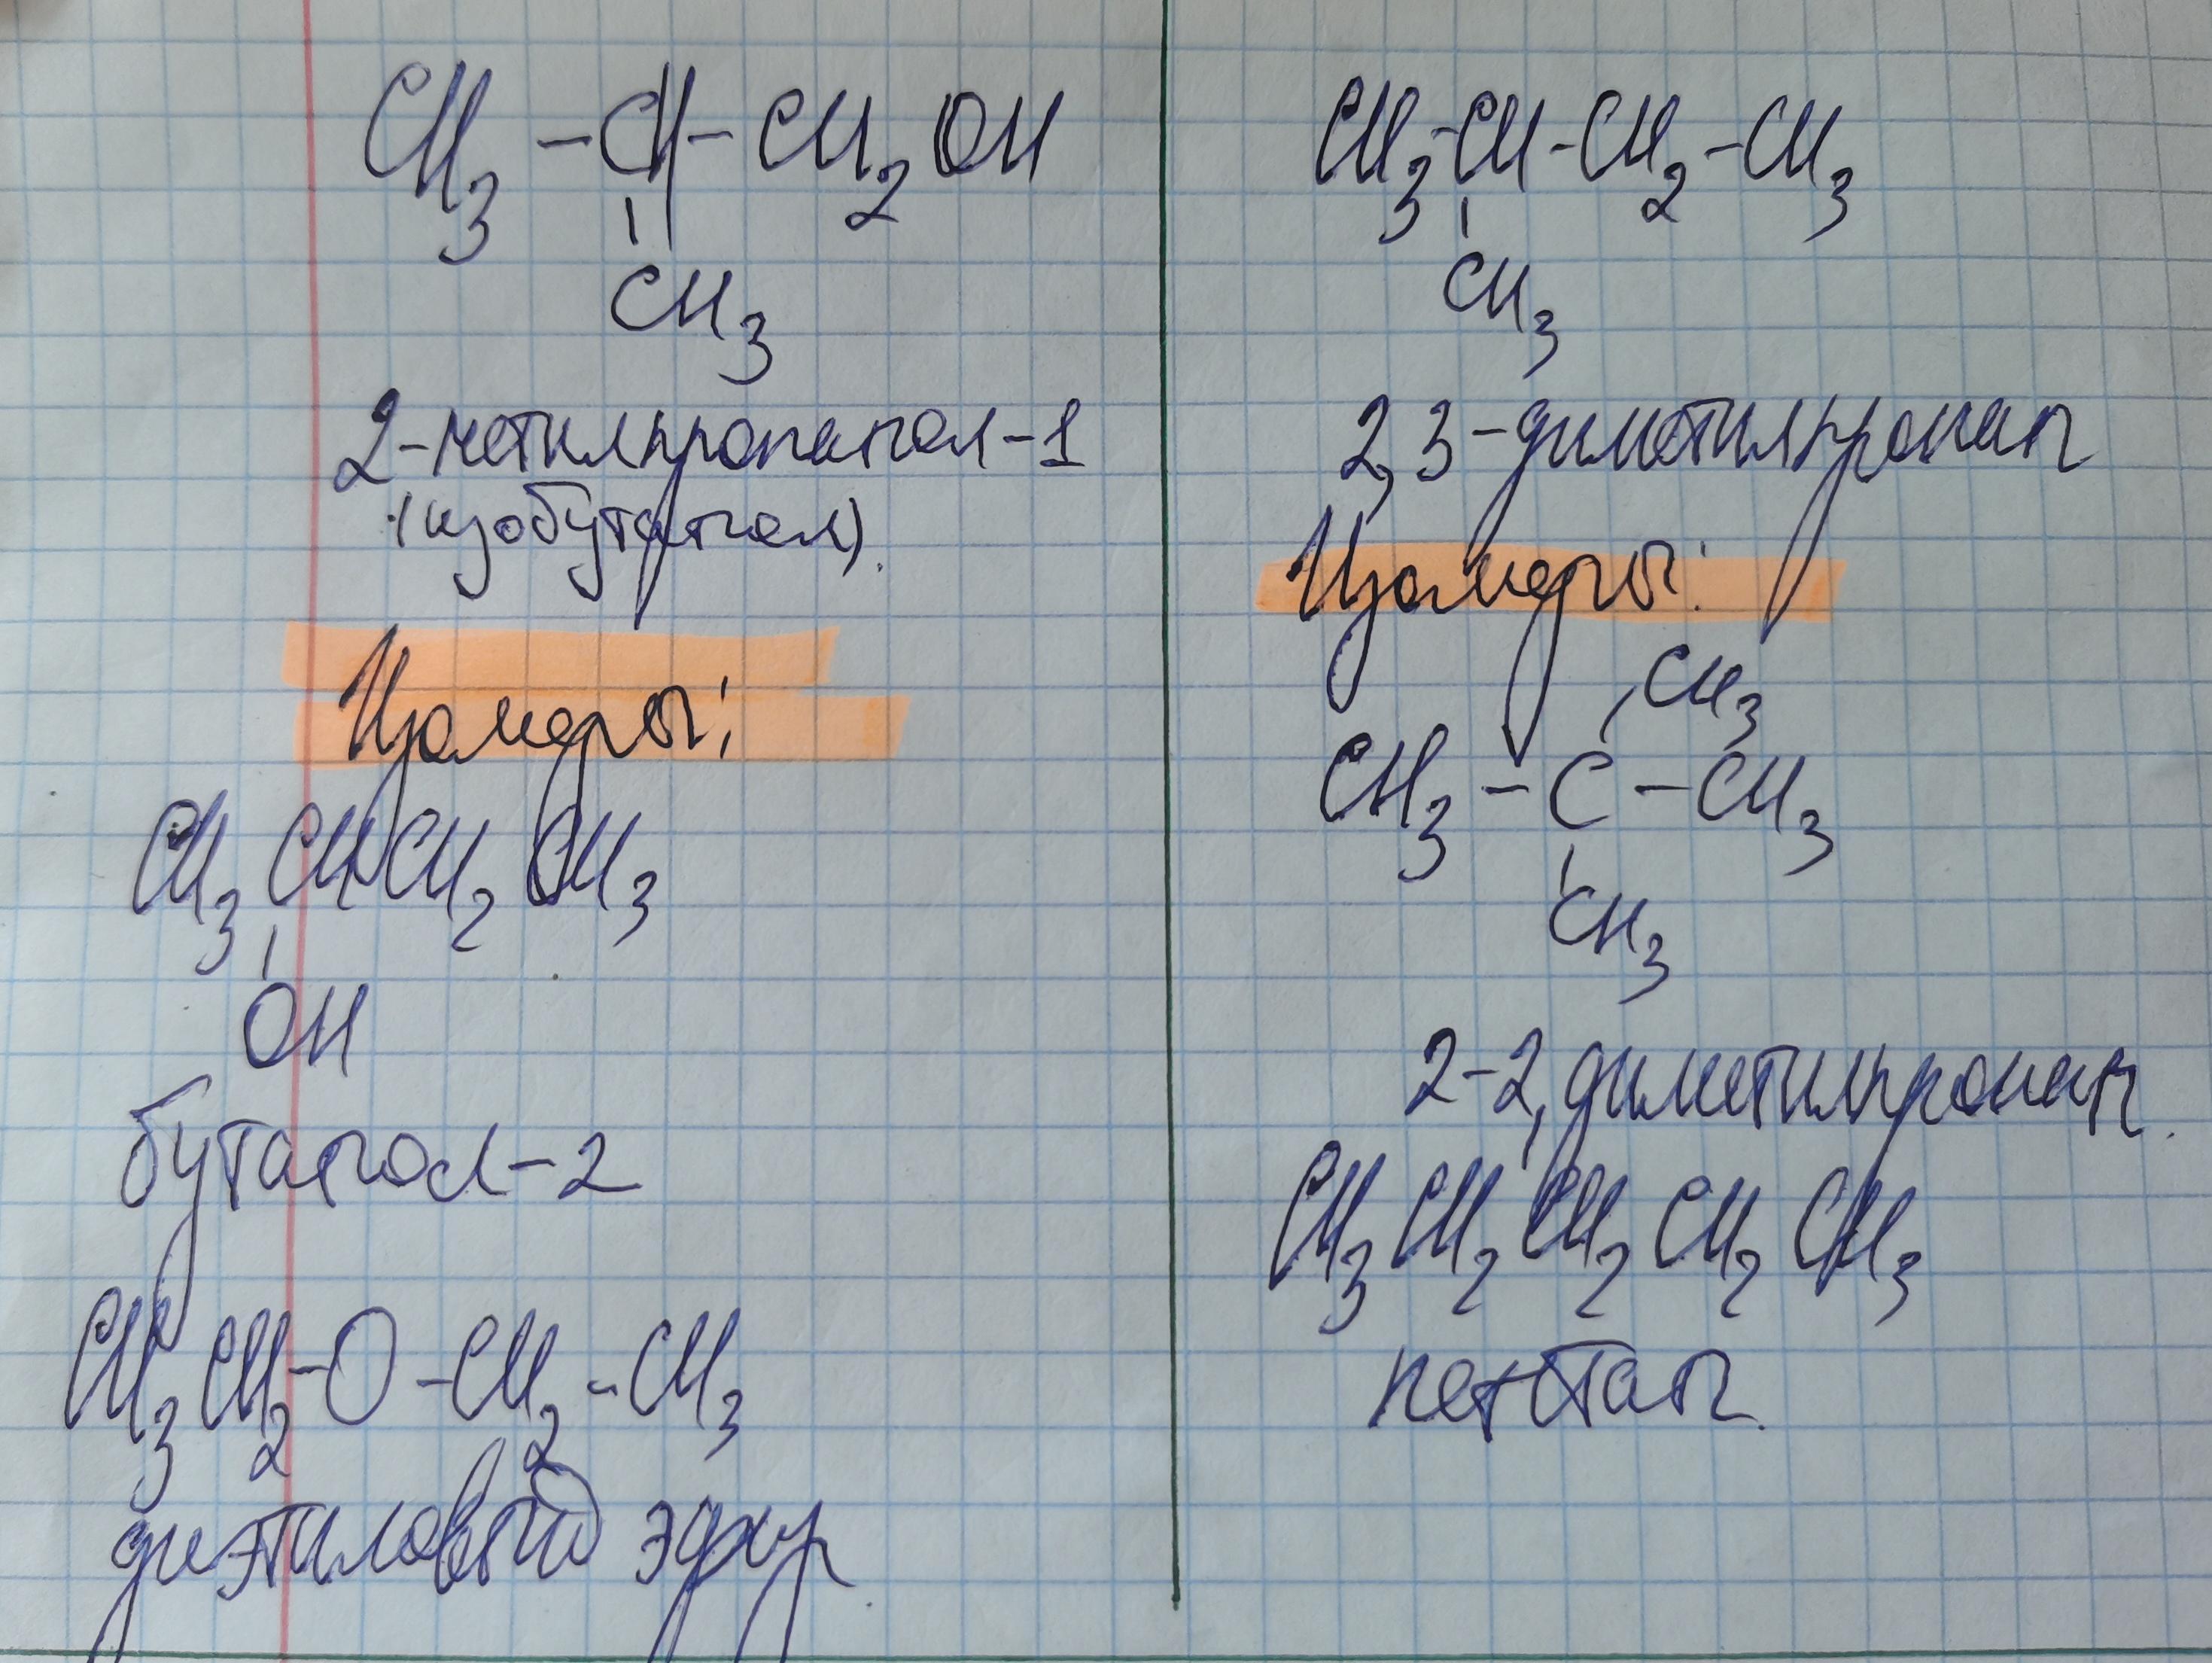 CH3 – CH – CH2 OH
CH3
2-метилпропанол-1
(изобутанол).
Изомеры:
CH3 CH CH2 CH3
OH
бутанол-2
CH3 CH2 – O – CH2 – CH3
диэтиловый эфир
CH3 – CH – CH2 – CH3
CH3
2,3-диметилпропан
Изомеры:
CH3
CH3 – C – CH3
CH3
2-2,диметилпропан.
CH3 CH2 CH2 CH2 CH3
пентан.